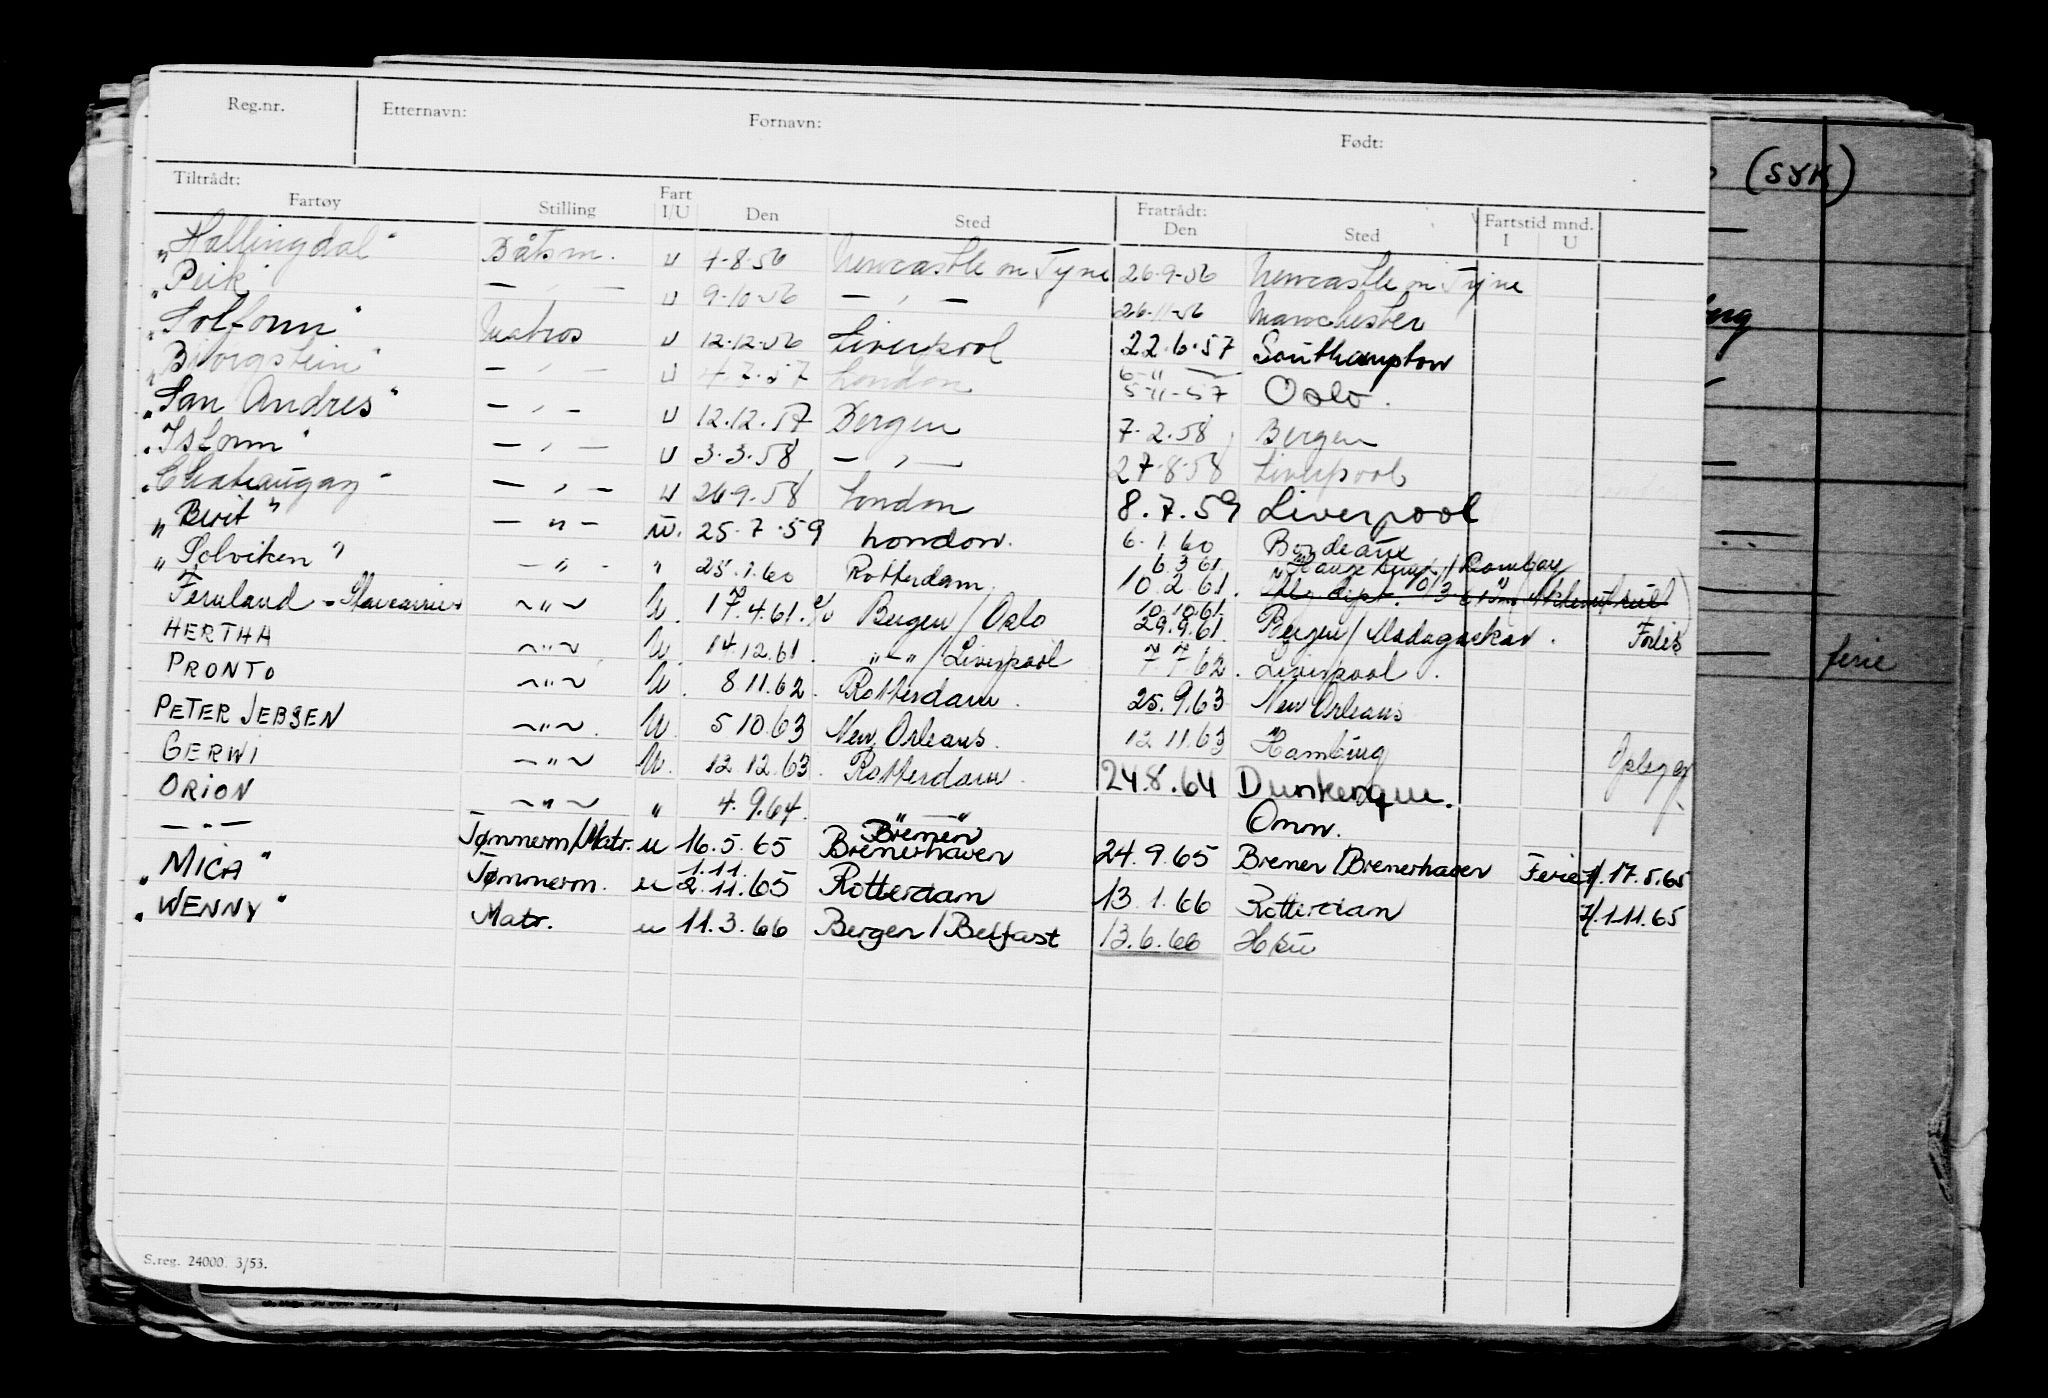 Reg.nr. Etternavn: Fornavn: Født:
Tiltrådt: Fratrådt:
Fartøy Stilling Fart I/U Den Sted Den Sted Fartstid mnd. I U
"Hallingdal" Båtsm. U 7-8-56 Newcastle on Tyne 26-9-56 Newcastle on Tyne
"Peik" — , — U 9-10-56 — , — 26-11-56 Manchester
"Solfonn" Matros U 12-12-56 Liverpool 22.6.57 Southampton
"Bjørgstein" — , — U 4.7.57 London 6-11 — 5-11-57 Oslo.
"San Andres" — , — U 12.12.57 Bergen 7.2.58 Bergen
"Isfonn" — , — U 3.3.58 — , — 27-8-58 Liverpool
"Chateaugay" — , — U 26-9-58 London 8.7.59 Liverpool
"Berit" — " — u. 25.7.59 London. 6.1.60 Bordeaux
"Solviken" — " — " 25.1.60 Rotterdam. 6 3 61 / Bombay
Fernland - ~ " ~ U. 17.4.61. Bergen / Oslo 10 2 61.
HERTHA ~ " ~ U. 14.12.61. " - " / Liverpool 10.10.61. 29.9.61. Bergen / Madagaskar.
PRONTO ~ " ~ U. 8 11.62. Rotterdam. 7 7 62. Liverpool.
PETER JEBSEN ~ " ~ U. 5 10.63 New Orleans. 25.9.63 New Orleans
GERWI ~ " ~ U. 12 12.63. Rotterdam. 12 11.63 Hamburg
ORION ~ " ~ " 4.9.64. " — " 24.8.64 Dunkerque.
— " — Tømmerm/Matr. u 16.5.65 Bremen Bremerhaven Omm. 24.9.65 Bremen / Bremerhaven Ferie 17.5.65
"MICA" Tømmerm. u 1.11. 2.11.65 Rotterdam 13.1.66 Rotterdam 1.11.65
"WENNY" Matr. u 11.3.66 Bergen / Belfast 13.6.66
S.reg. 24000. 3/53.
(SYK)
ferie